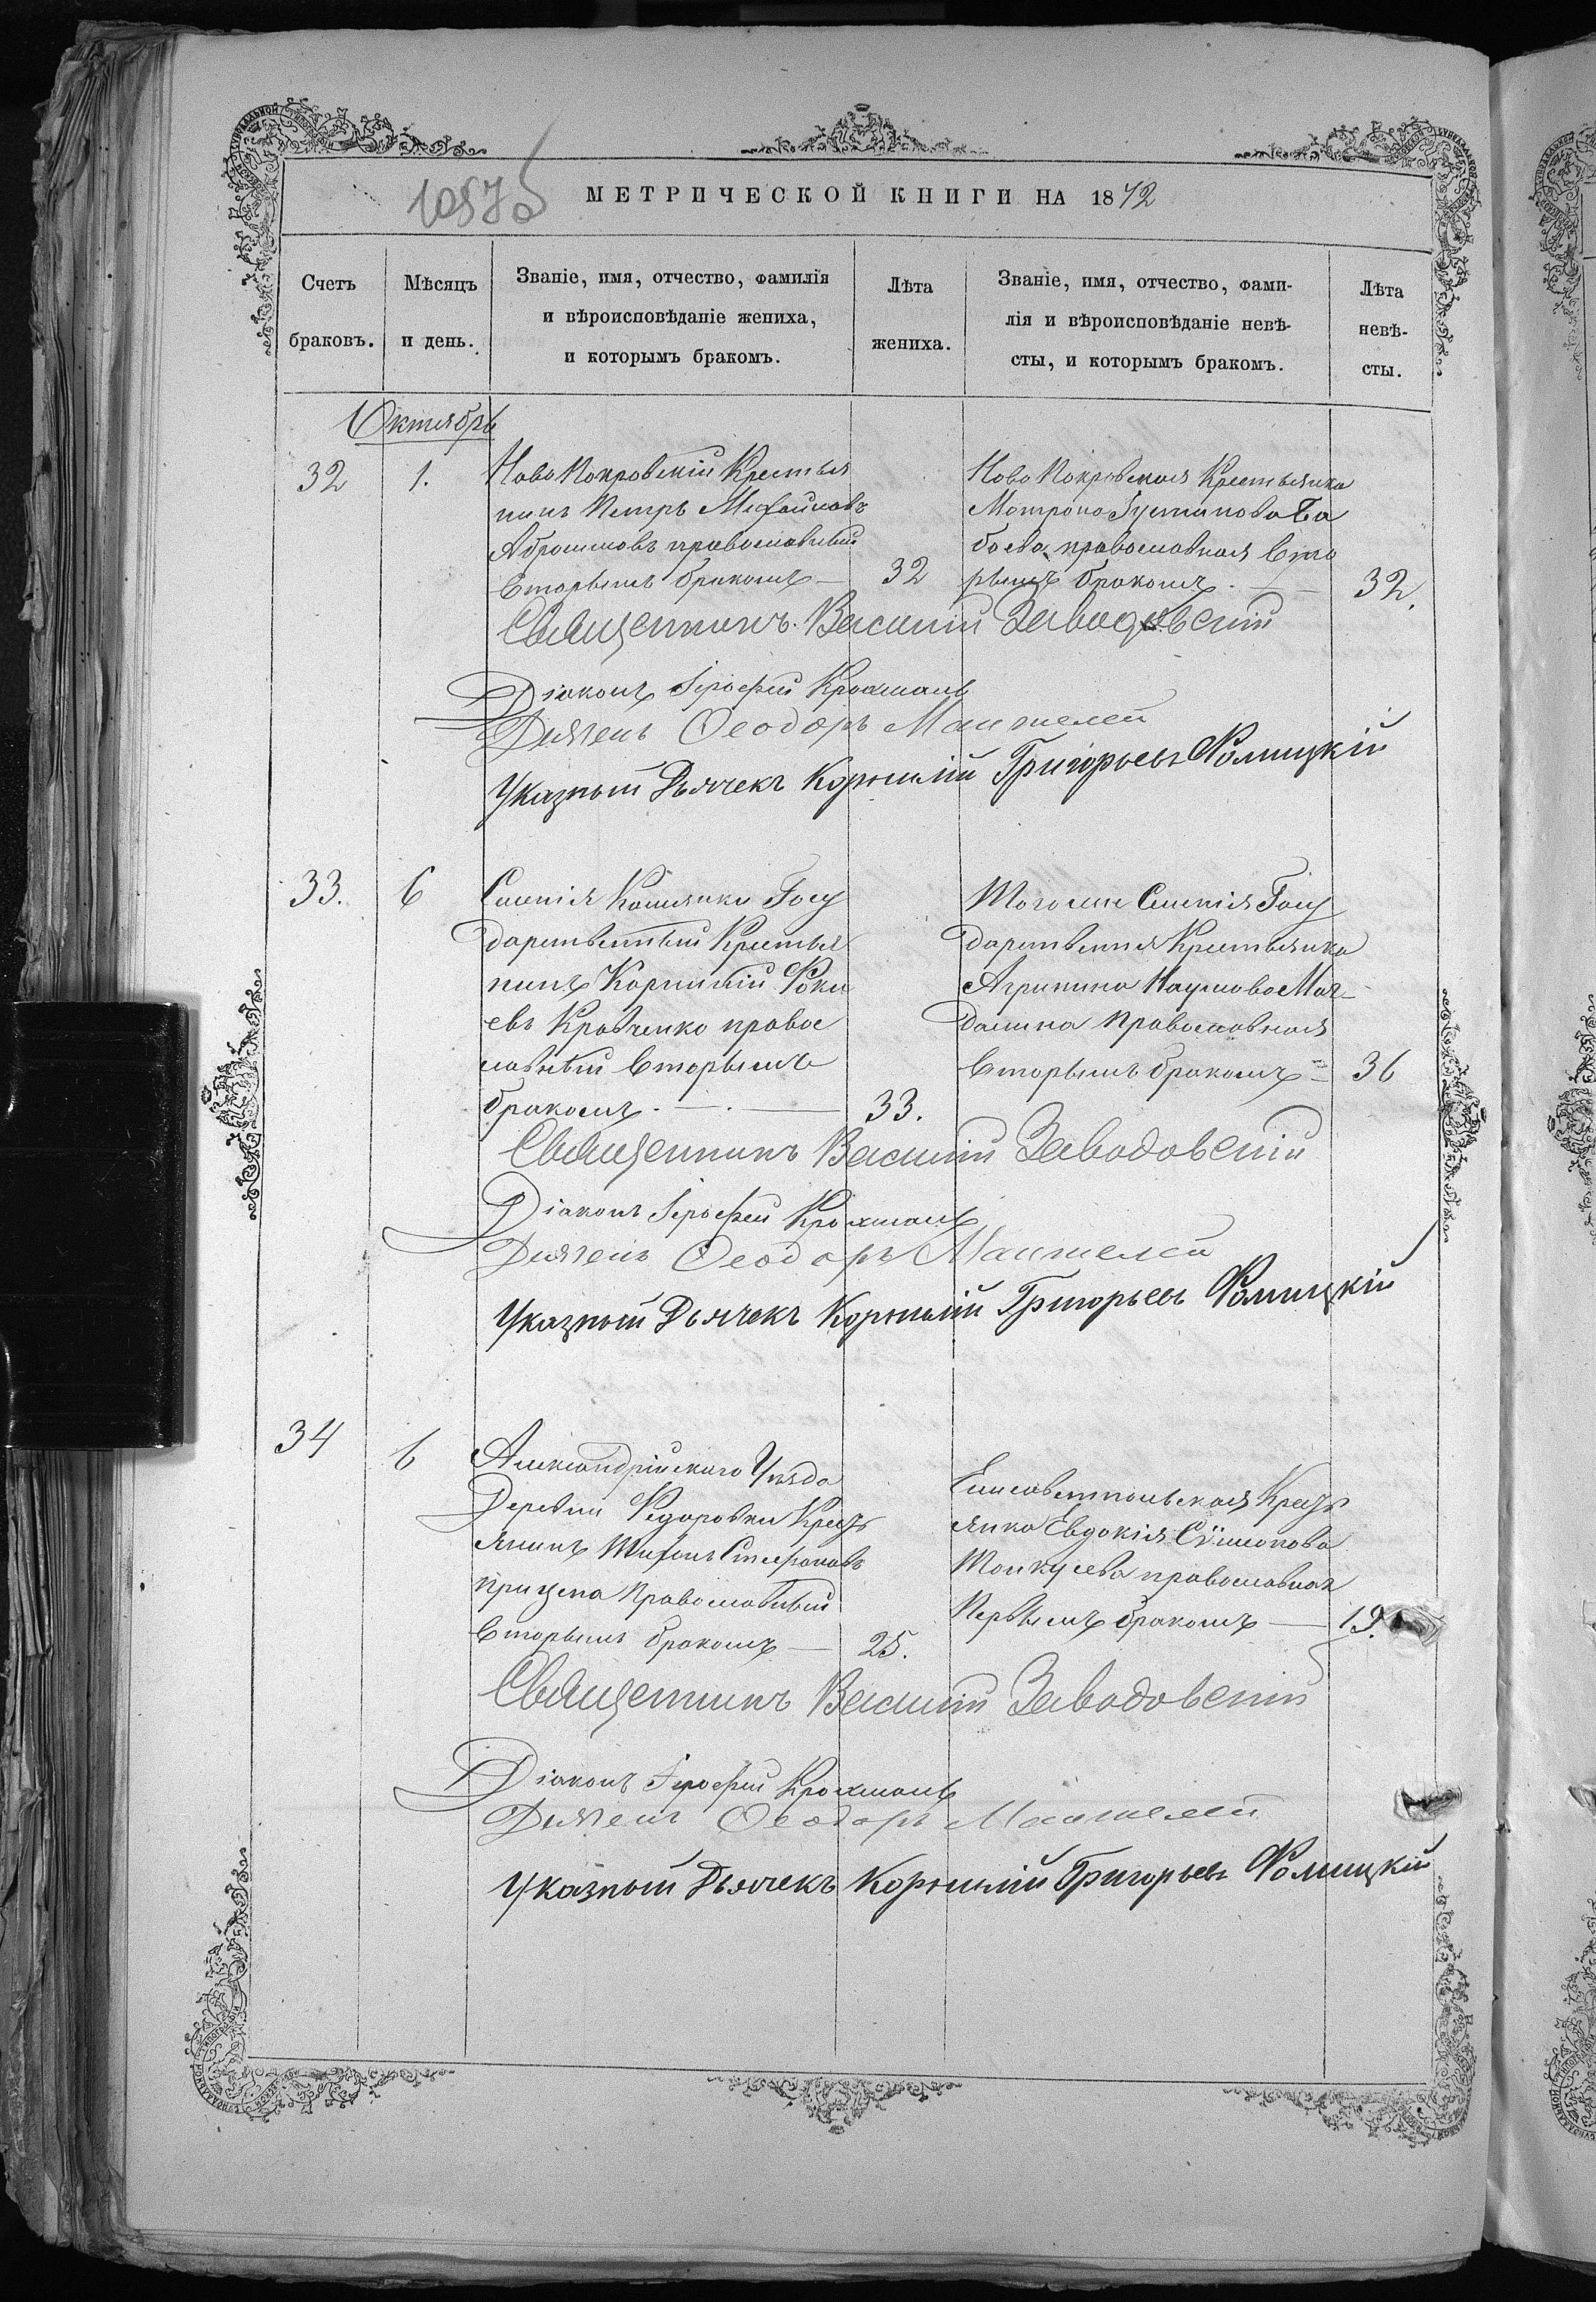 МЕТРИЧЕСКОЙ КНИГИ НА 1872
Счетъ браковъ.
Мѣсяцъ и день.
Званіе, имя, отчество, фамилія
и вѣроисповѣданіе жениха,
и которымъ бракомъ.
Лѣта жениха.
Званіе, имя, отчество, фами-
лія и вѣроисповѣданіе невѣ-
сты, и которымъ бракомъ.
Лѣта невѣ-
сты.
Октябрь
32
1.
Ново Покровскій Крестья
нинъ Петръ
Абрамовъ православный
Вторымъ бракомъ — 32
Ново Покровская Крестьянка
Матрона Густинова Ба
боева православная Вто
рымъ бракомъ. — 32.
Священникъ Василій Заводовскій
Діаконъ Іерофей Крохмаль
Дьячекъ Ѳеодоръ
Указный Дьячекъ Корнилій Григорьевъ Фомицкій
33.
6
Селенія Компанки Госу
дарственный Крестья
нинъ Корнилій Фоки
евъ Кравченко право
славный Вторымъ
бракомъ. — 33.
Того же Селенія Госу
дарственная Крестьянка
Агрипина Наумова Маг
далина Православная
Вторымъ бракомъ — 36
Священникъ Василій Заводовскій
Діаконъ Іерофей Крохмаль
Дьячекъ Ѳеодоръ
Указный Дьячекъ Корнилій Григорьевъ Фомицкій
34
6
Александрійскаго Уѣзда
Деревни Федоровки Крест
янинъ Тифонъ Стефановъ
Прицепа Православный
Вторымъ бракомъ — 25.
Елисаветпольская Крест
янка Евдокія Симонова
православная
Первымъ бракомъ — 19.
Священникъ Василій Заводовскій
Діаконъ Іерофей Крохмаль
Дьячекъ Ѳеодоръ
Указный Дьячекъ Корнилій Григорьевъ Фомицкій